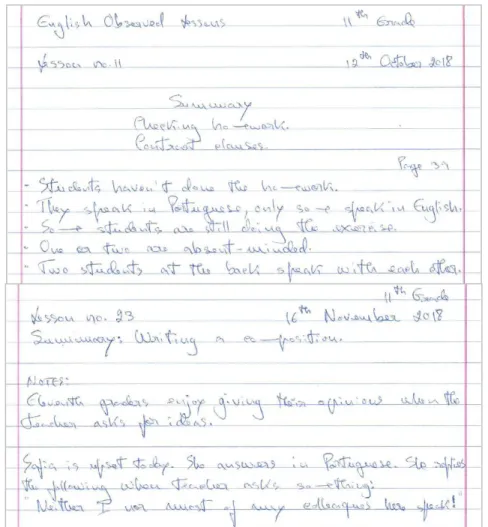 English Observed Lessons 11th Grade
Lesson no. 11 12th October 2018
Summary
Checking homework.
Contrast clauses.
Page 31
- Students haven't done the homework.
- They speak in Portuguese, only some speak in English.
- Some students are still doing the exercise.
- One or two are absent-minded.
- Two students at the back speak with each other.
11th Grade
Lesson no. 23 16th November 2018
Summary: Writing a composition.
NOTES:
Eleventh graders enjoy giving their opinions when the
teacher asks for ideas.
Sofia is upset today. She answers in Portuguese. She replies
the following when teacher asks something:
"Neither I nor most of my colleagues here speak!"